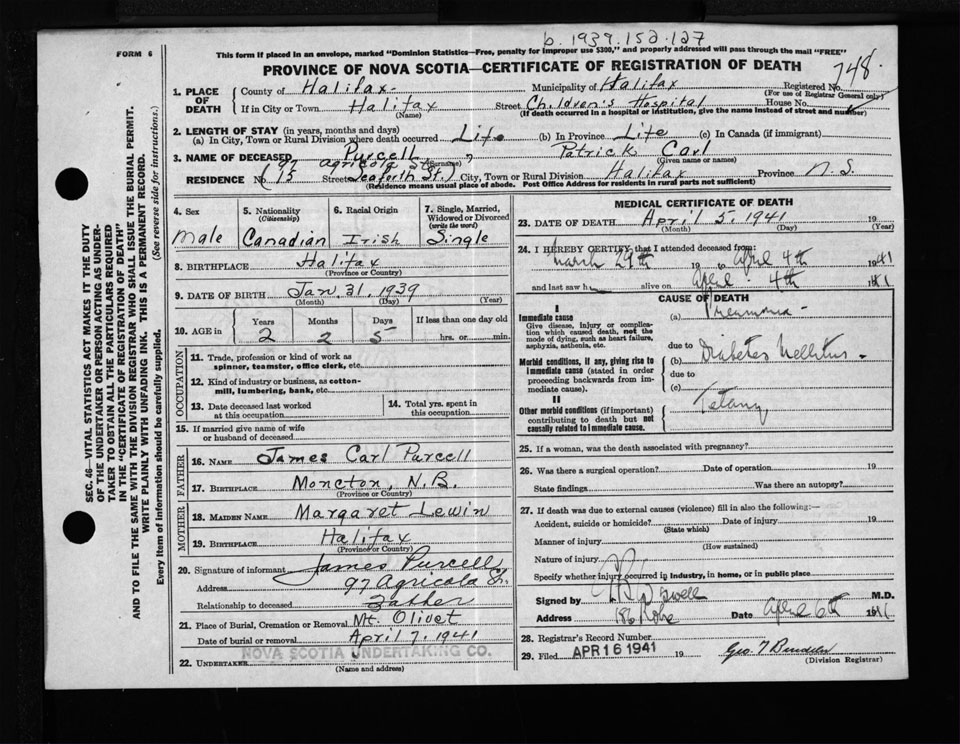 b. 1939.152.127
FORM 6
This form if placed in an envelope, marked "Dominion Statistics—Free, penalty for improper use $300," and properly addressed will pass through the mail "FREE"
PROVINCE OF NOVA SCOTIA—CERTIFICATE OF REGISTRATION OF DEATH
748
1. PLACE OF DEATH
County of Halifax Municipality of Halifax Registered No.
(For use of Registrar General only)
If in City or Town Halifax Street Children's Hospital House No.
(Name) (If death occurred in a hospital or institution, give the name instead of street and number)
2. LENGTH OF STAY (in years, months and days)
(a) In City, Town or Rural Division where death occurred Life (b) In Province Life (c) In Canada (if immigrant)
3. NAME OF DECEASED Purcell, Patrick Carl
(Surname) (Given name or names)
97 Agricola St
RESIDENCE No. (15 Street Seaforth St.) City, Town or Rural Division Halifax Province N.S.
(Residence means usual place of abode. Post Office Address for residents in rural parts not sufficient)
4. Sex
Male
5. Nationality
(Citizenship)
Canadian
6. Racial Origin
Irish
7. Single, Married, Widowed or Divorced
(write the word)
Single
8. BIRTHPLACE Halifax
(Province or Country)
9. DATE OF BIRTH Jan 31, 1939
(Month) (Day) (Year)
10. AGE in
Years Months Days If less than one day old
2 2 5 hrs. or min.
OCCUPATION
11. Trade, profession or kind of work as
spinner, teamster, office clerk, etc.
12. Kind of industry or business, as cotton-
mill, lumbering, bank, etc.
13. Date deceased last worked
at this occupation
14. Total yrs. spent in
this occupation
15. If married give name of wife
or husband of deceased
FATHER
16. NAME James Carl Purcell
17. BIRTHPLACE Moncton, N.B.
(Province or Country)
MOTHER
18. MAIDEN NAME Margaret Lewin
19. BIRTHPLACE Halifax
(Province or Country)
20. Signature of informant James Purcell
Address 97 Agricola St.
Relationship to deceased Father
21. Place of Burial, Cremation or Removal Mt. Olivet
Date of burial or removal April 7, 1941
22. UNDERTAKER NOVA SCOTIA UNDERTAKING CO.
(Name and address)
MEDICAL CERTIFICATE OF DEATH
23. DATE OF DEATH April 5, 1941 19
(Month) (Day) (Year)
24. I HEREBY CERTIFY that I attended deceased from:
March 29th 19 to April 4th 1941
and last saw h alive on April 4th 1941
CAUSE OF DEATH
I
Immediate cause
Give disease, injury or complica-
tion which caused death, not the
mode of dying, such as heart failure,
asphyxia, asthenia, etc.
(a) Pneumonia
due to
Morbid conditions, if any, giving rise to
immediate cause (stated in order
proceeding backwards from im-
mediate cause).
(b) Diabetes Mellitus
due to
(c)
II
Other morbid conditions (if important)
contributing to death but not
causally related to immediate cause.
Tetany
25. If a woman, was the death associated with pregnancy?
26. Was there a surgical operation? Date of operation 19
State findings Was there an autopsy?
27. If death was due to external causes (violence) fill in also the following:—
Accident, suicide or homicide? Date of injury 19
(State which)
Manner of injury
(How sustained)
Nature of injury
Specify whether injury occurred in industry, in home, or in public place
Signed by M.D.
Address 186 Date April 6th 1941
28. Registrar's Record Number
29. Filed APR 16 1941 19 Geo. T
(Division Registrar)
SEC. 46—VITAL STATISTICS ACT MAKES IT THE DUTY
OF THE UNDERTAKER OR PERSON ACTING AS UNDER-
TAKER TO OBTAIN ALL THE PARTICULARS REQUIRED
IN THE "CERTIFICATE OF REGISTRATION OF DEATH"
AND TO FILE THE SAME WITH THE DIVISION REGISTRAR WHO SHALL ISSUE THE BURIAL PERMIT.
WRITE PLAINLY WITH UNFADING INK. THIS IS A PERMANENT RECORD.
Every item of information should be carefully supplied. (See reverse side for instructions.)